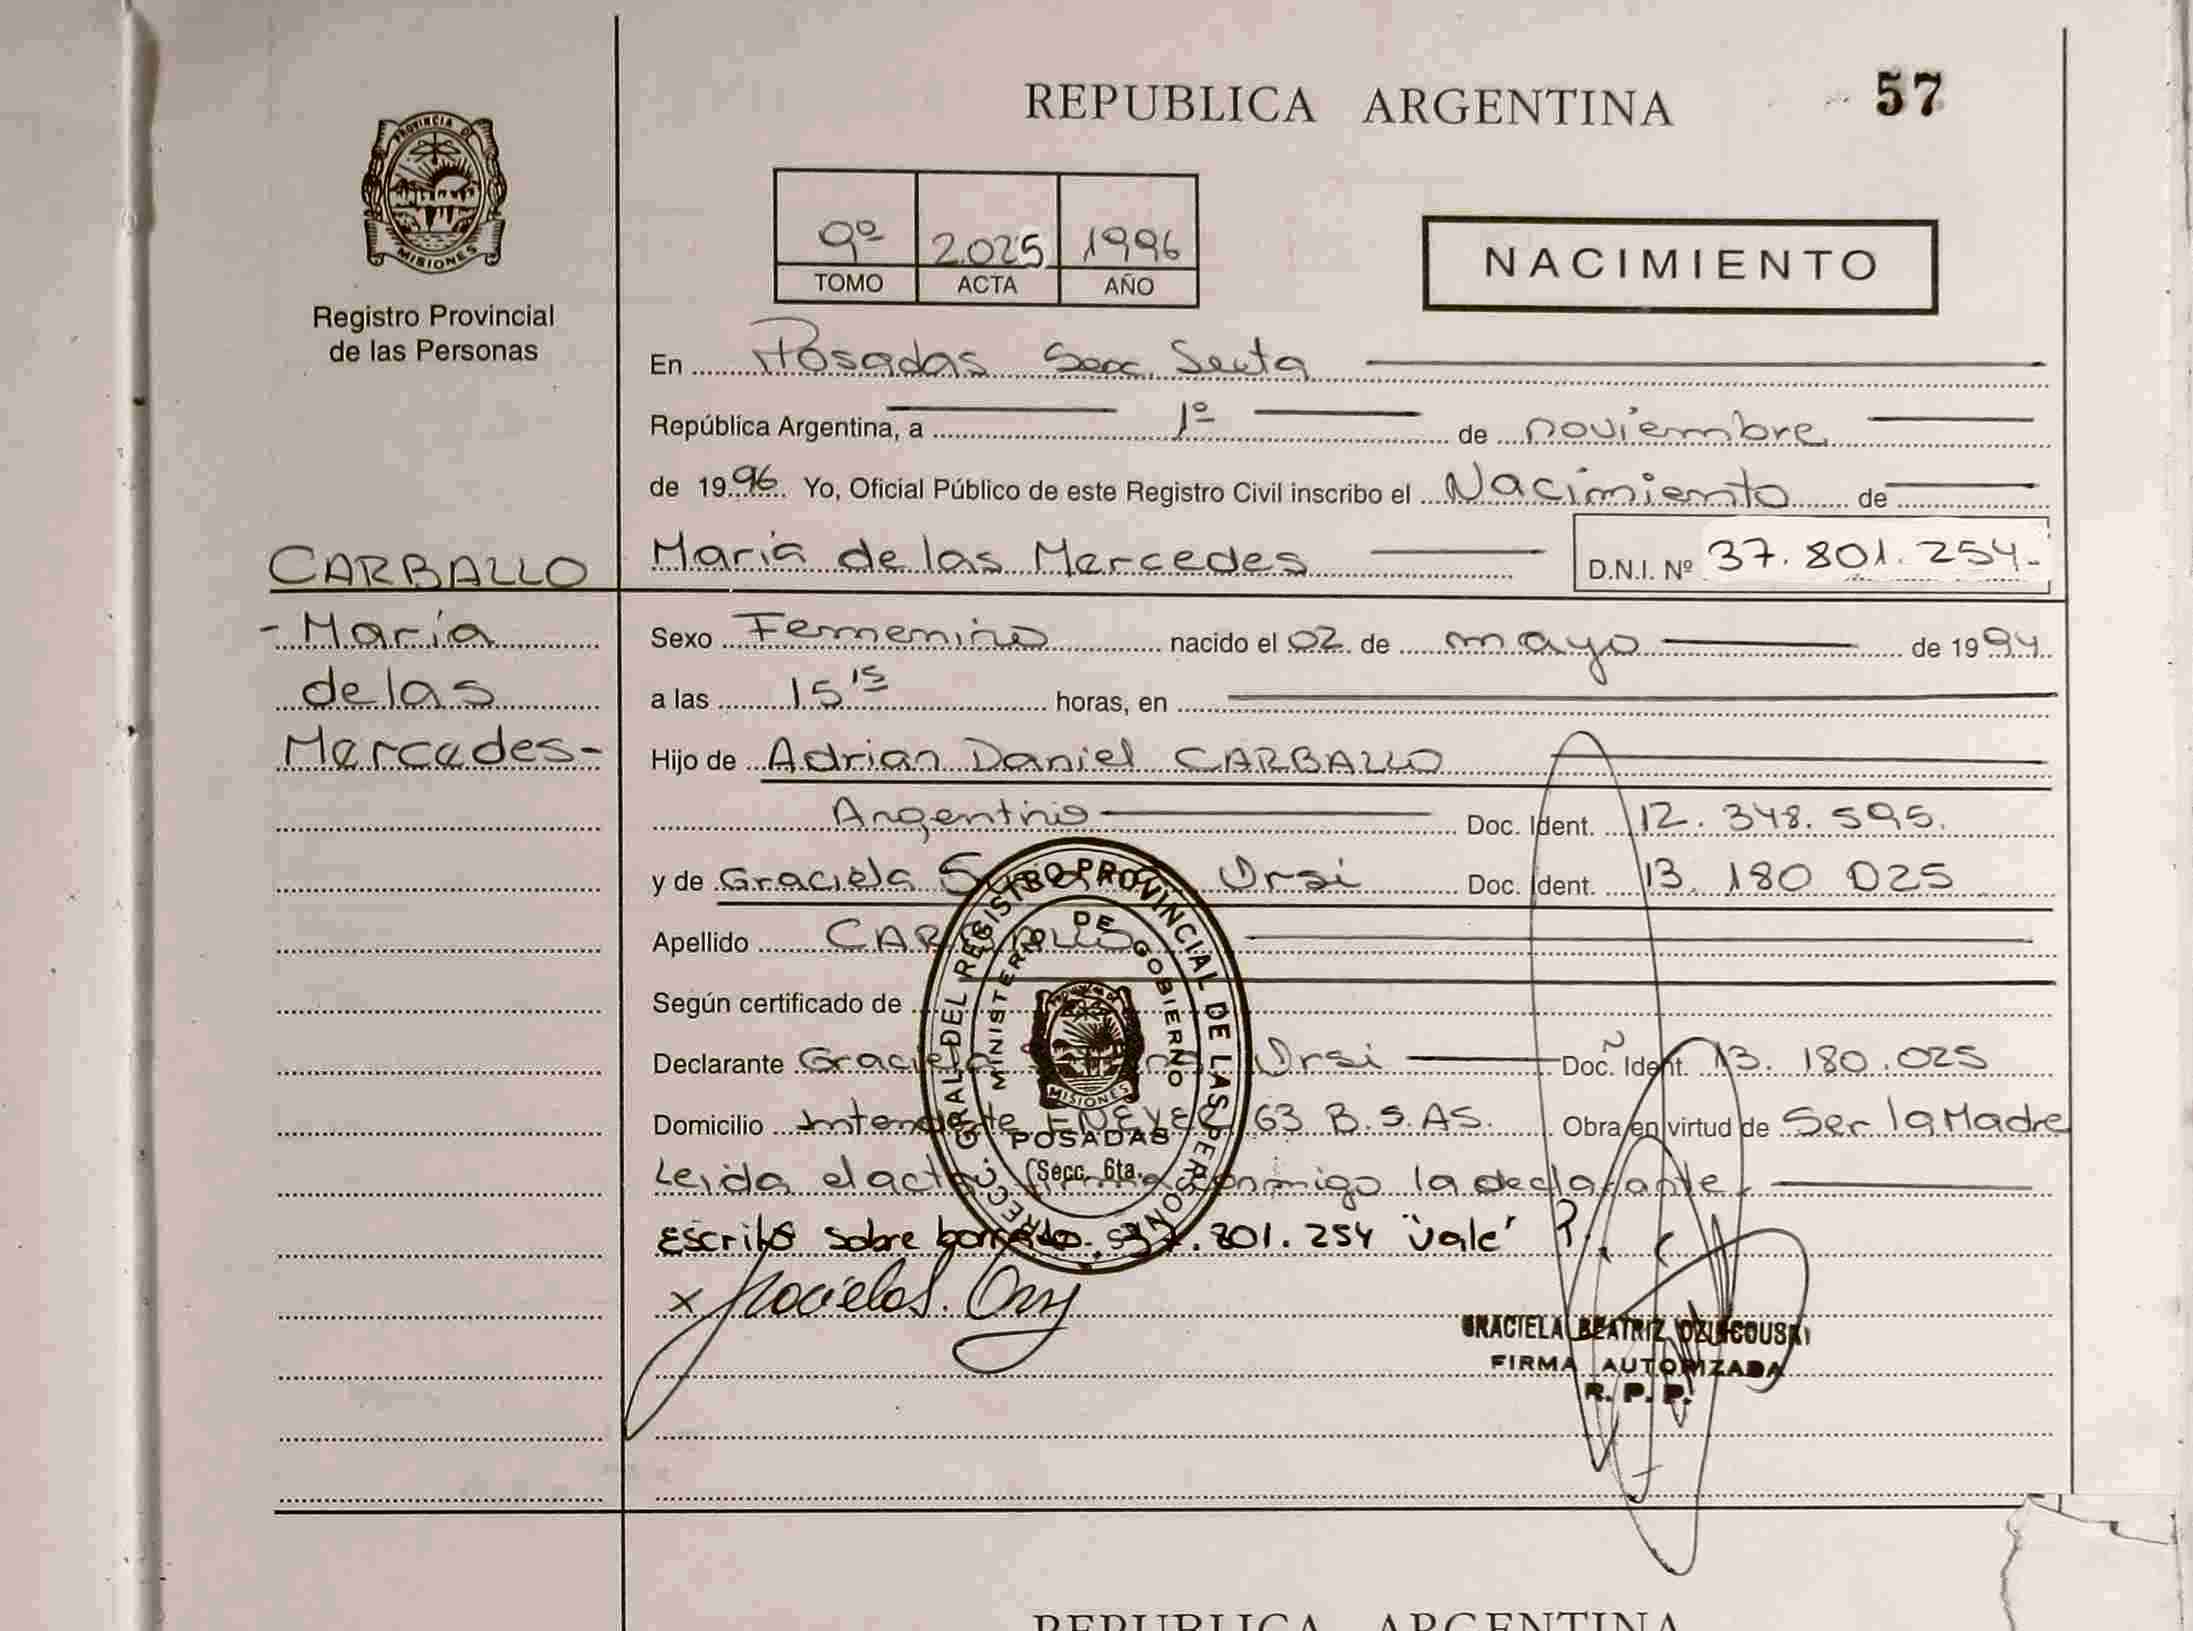 REPUBLICA ARGENTINA
57
PROVINCIA DE
MISIONES
Registro Provincial
de las Personas
9º 2.025 1996
TOMO ACTA AÑO
NACIMIENTO
En Posadas Secc. Sexta
República Argentina, a 1º de noviembre
de 1996. Yo, Oficial Público de este Registro Civil inscribo el Nacimiento de
CARBALLO
María de las Mercedes
D.N.I. Nº 37.801.254.-
- María
de las
Mercedes -
Sexo Femenino nacido el 02 de mayo de 1994
a las 15 15 horas, en
Hijo de Adrian Daniel CARBALLO
Argentino Doc. Ident. 12.348.595.
y de Graciela Orsi Doc. Ident. 13.180 025
Apellido CARBALLO
Según certificado de
Declarante Graciela Orsi Doc. Ident. 13.180.025
Domicilio Intendente 63 B.S.AS. Obra en virtud de Ser la Madre
Leida el acta, firma conmigo la declarante.
Escrito sobre borrado. 37.801.254 "vale"
x Graciela S. Orsi
GRAL DEL REGISTRO PROVINCIAL DE LAS PERSONAS
MINISTERIO DE GOBIERNO
MISIONES
POSADAS
(Secc. 6ta.
GRACIELA BEATRIZ
FIRMA AUTORIZADA
R. P. P.
REPUBLICA ARGENTINA